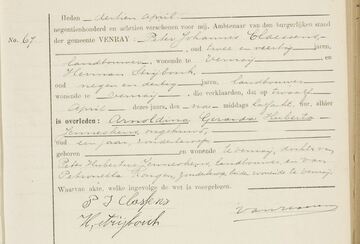 Heden dertien April
negentienhonderd en zestien verschenen voor mij, Ambtenaar van den burgerlijken stand
der gemeente VENRAY: Peter Johannes Claessens
No. 67. oud twee en veertig jaren,
landbouwer, wonende te Venray en
Herman Strijbosch
oud negen en dertig jaren, landbouwer
wonende te Venray, die verklaarden, dat op twaalf
April dezes jaars, des na-middags te acht ure, alhier
is overleden: Arnoldina Gerarda Huberta
Jenneskens ongehuwd,
oud een jaar, zonder beroep,
geboren en wonende te Venray, dochter van
Peter Hubertus Jenneskens, landbouwer en van
Petronella, beide wonende te Venray
Waarvan akte, welke ingevolge de wet is voorgelezen.
P J Claessens
H. Strijbosch